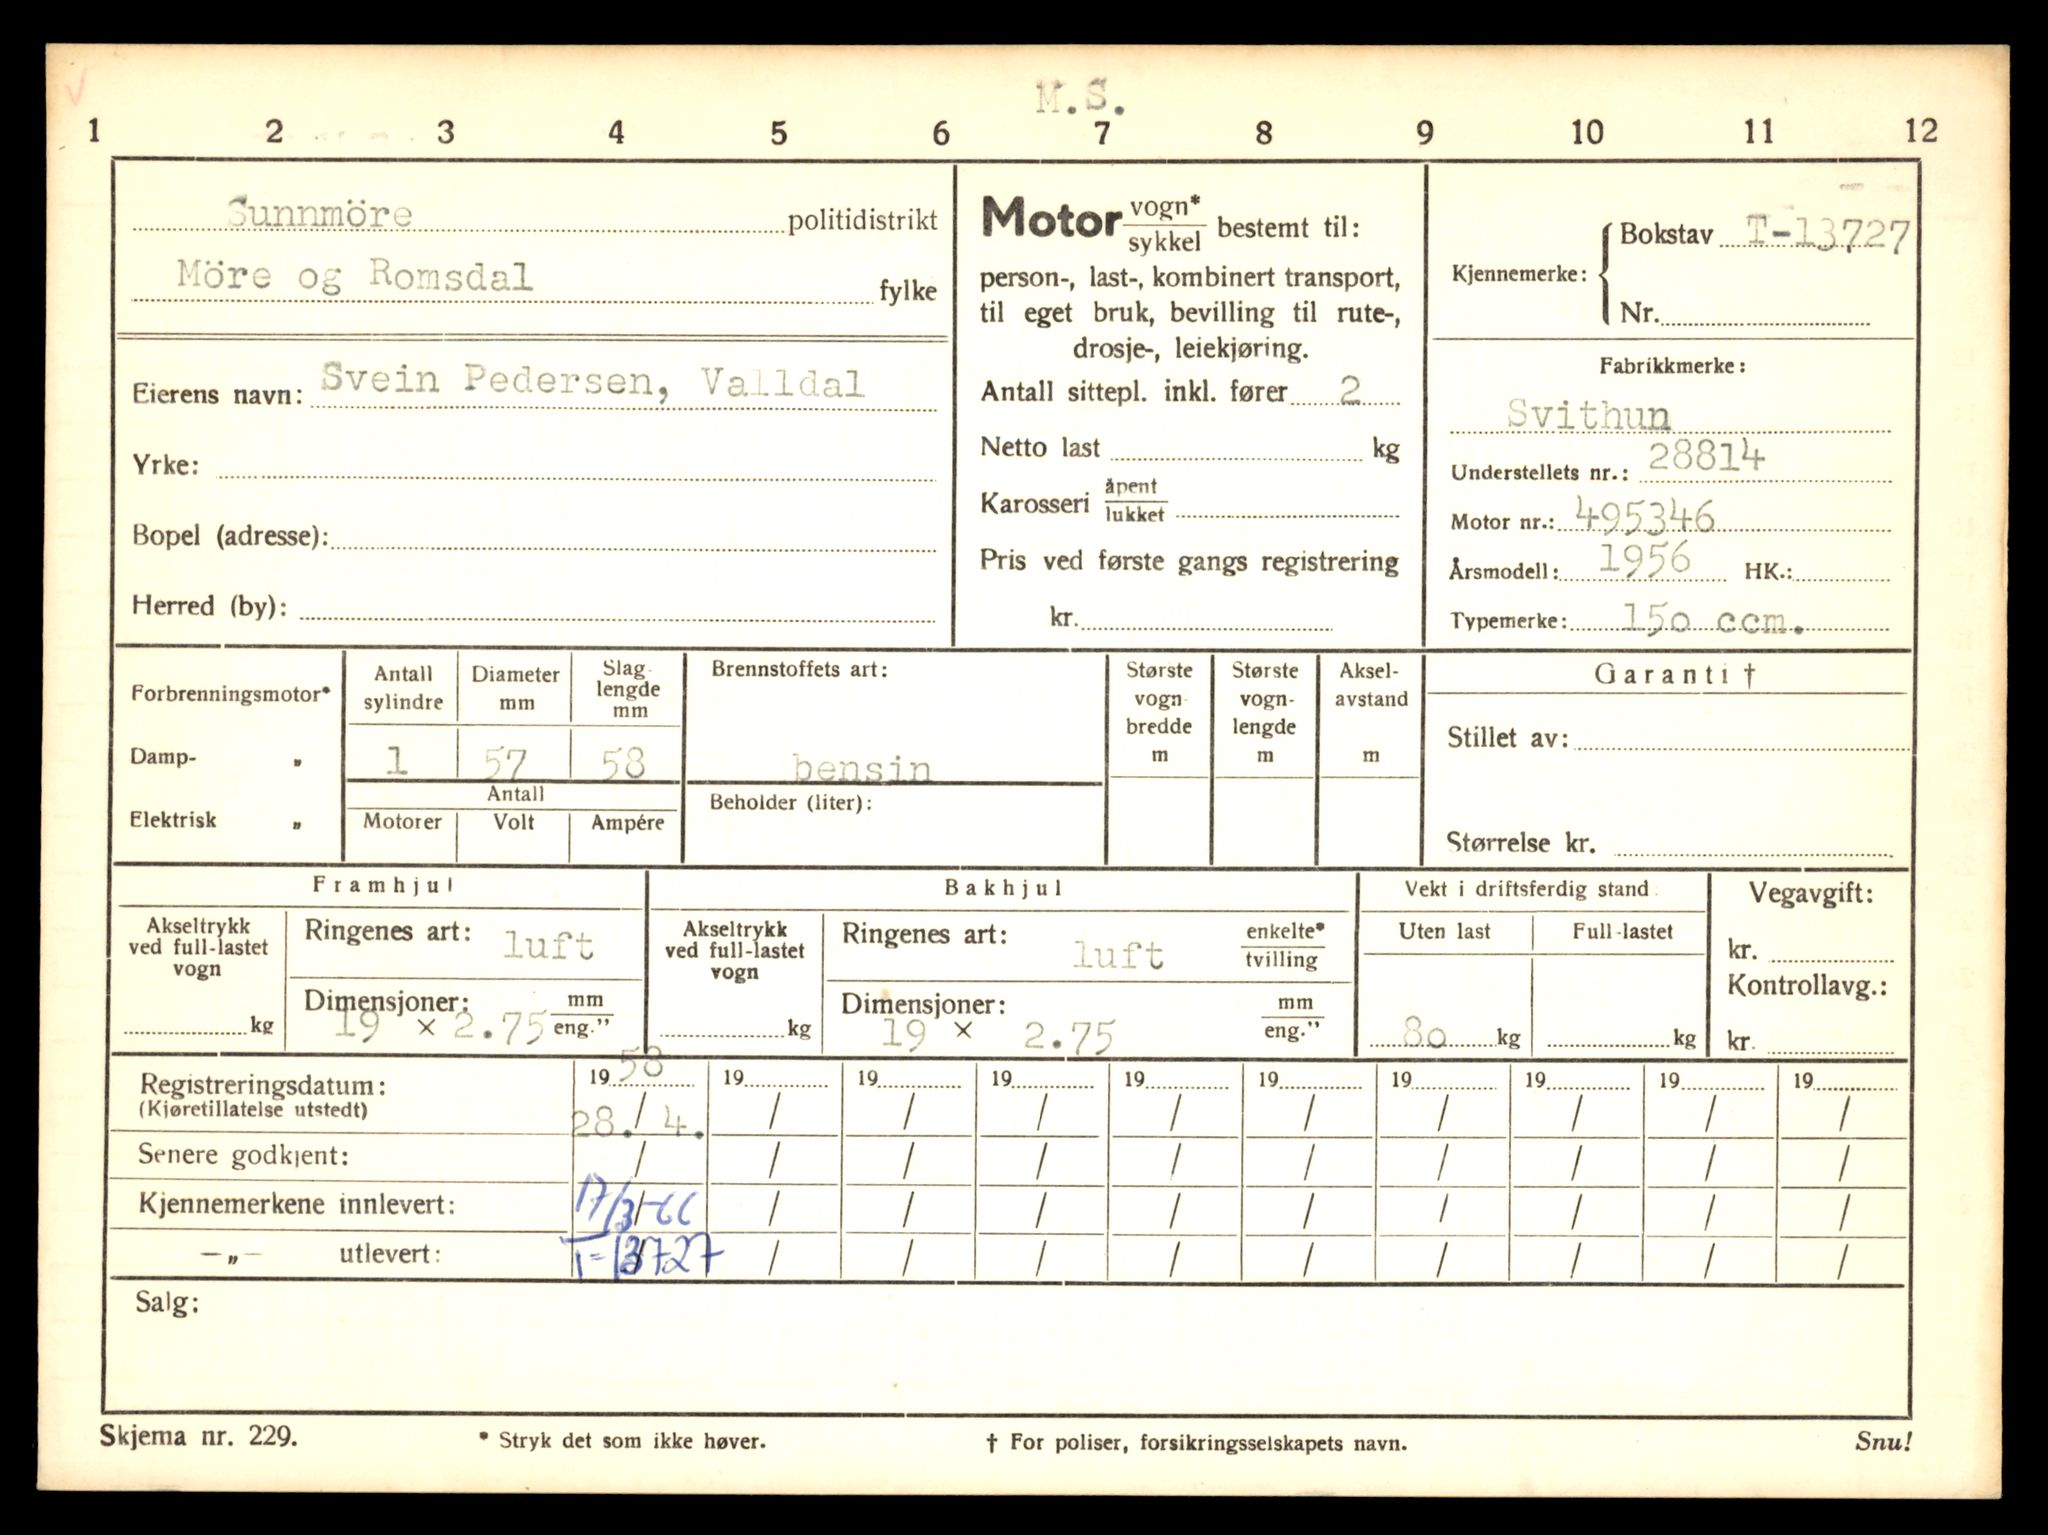 M.S.
1 2 3 4 5 6 7 8 9 10 11 12
Sunnmöre politidistrikt
Möre og Romsdal fylke
Eierens navn: Svein Pedersen, Valldal
Yrke:
Bopel (adresse):
Herred (by):
Motor vogn* / sykkel bestemt til:
person-, last-, kombinert transport,
til eget bruk, bevilling til rute-,
drosje-, leiekjøring.
Antall sittepl. inkl. fører 2
Netto last kg
Karosseri åpent / lukket
Pris ved første gangs registrering
kr.
Kjennemerke: { Bokstav T-13727
Nr.
Fabrikkmerke:
Svithun
Understellets nr.: 28814
Motor nr.: 495346
Årsmodell: 1956 HK.:
Typemerke: 150 ccm.
Forbrenningsmotor*
Damp- „
Elektrisk „
Antall sylindre
Diameter mm
Slag-lengde mm
1 57 58
Antall
Motorer Volt Ampére
Brennstoffets art:
bensin
Beholder (liter):
Største vogn-bredde m
Største vogn-lengde m
Aksel-avstand m
Garanti †
Stillet av:
Størrelse kr.
Framhjul
Akseltrykk ved full-lastet vogn
kg
Ringenes art: luft
Dimensjoner: mm / eng."
19 × 2.75
Bakhjul
Akseltrykk ved full-lastet vogn
kg
Ringenes art: luft enkelte* / tvilling
Dimensjoner: mm / eng."
19 × 2.75
Vekt i driftsferdig stand
Uten last Full-lastet
80 kg kg
Vegavgift:
kr.
Kontrollavg.:
kr.
Registreringsdatum: 1958 19 19 19 19 19 19 19 19 19
(Kjøretillatelse utstedt) 28./4. / / / / / / / / /
Senere godkjent: / / / / / / / / / /
Kjennemerkene innlevert: 17/3-66 / / / / / / / / /
—„— utlevert: T=13727 / / / / / / / / /
Salg:
Skjema nr. 229. * Stryk det som ikke høver. † For poliser, forsikringsselskapets navn. Snu!